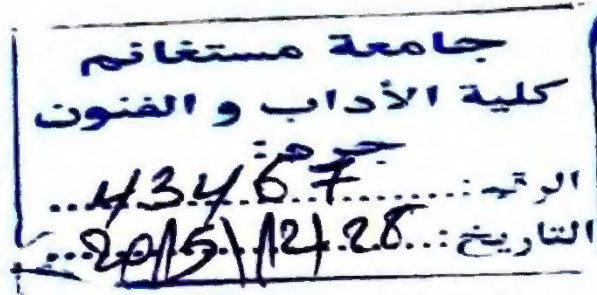 جامعة مستغانم
كلية الأداب و الفنون
جرد:
الرقم:....43467....
التاريخ:....2015\12\28